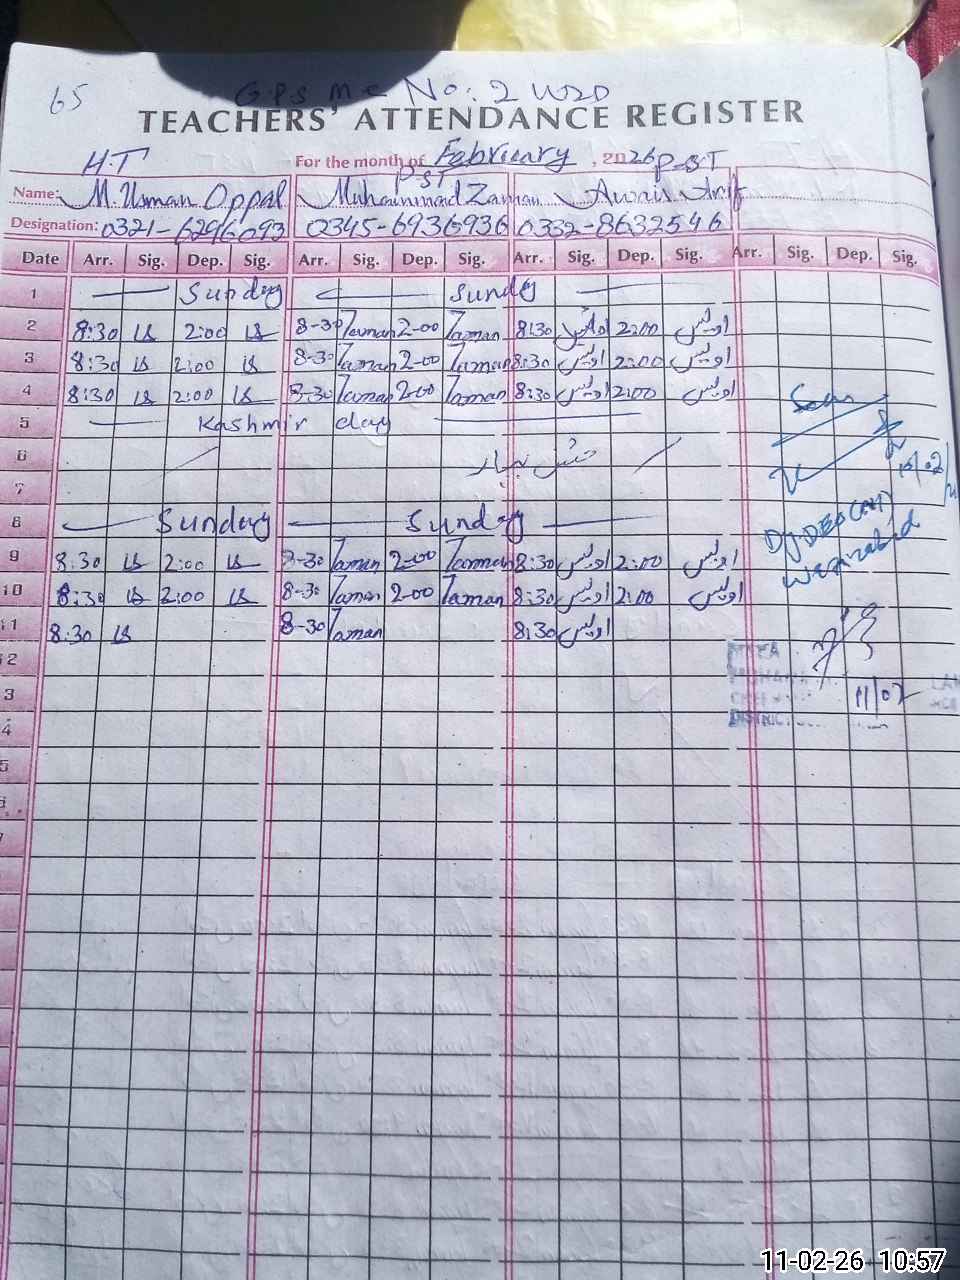 65
G.P.S M.C No: 2 WZD
TEACHERS' ATTENDANCE REGISTER
H.T For the month of February, 2026 P.S.T
P.S.T
Name: M. Usman Oppal Muhammad Zaman Awais
Designation: 0321-6296093 0345-6936936 0332-8632546
Date Arr. Sig. Dep. Sig. Arr. Sig. Dep. Sig. Arr. Sig. Dep. Sig. Arr. Sig. Dep. Sig.
1 Sunday Sunday
2 8:30 2:00 8-30 Zaman 2-00 Zaman 8:30 اویس 2:00 اویس
3 8:30 2:00 8-30 Zaman 2-00 Zaman 8:30 اویس 2:00 اویس
4 8:30 2:00 8-30 Zaman 2-00 Zaman 8:30 اویس 2:00 اویس
5 Kashmir day
6 جشن بہار
7
8 Sunday Sunday
9 8:30 2:00 8-30 Zaman 2-00 Zaman 8:30 اویس 2:00 اویس
10 8:30 2:00 8-30 Zaman 2-00 Zaman 8:30 اویس 2:00 اویس
11 8:30 8-30 Zaman 8:30 اویس
12
3
4
5
Seen
10/02/
Dy DEO
Wazirabad
11/02
DISTRICT
11-02-26 10:57